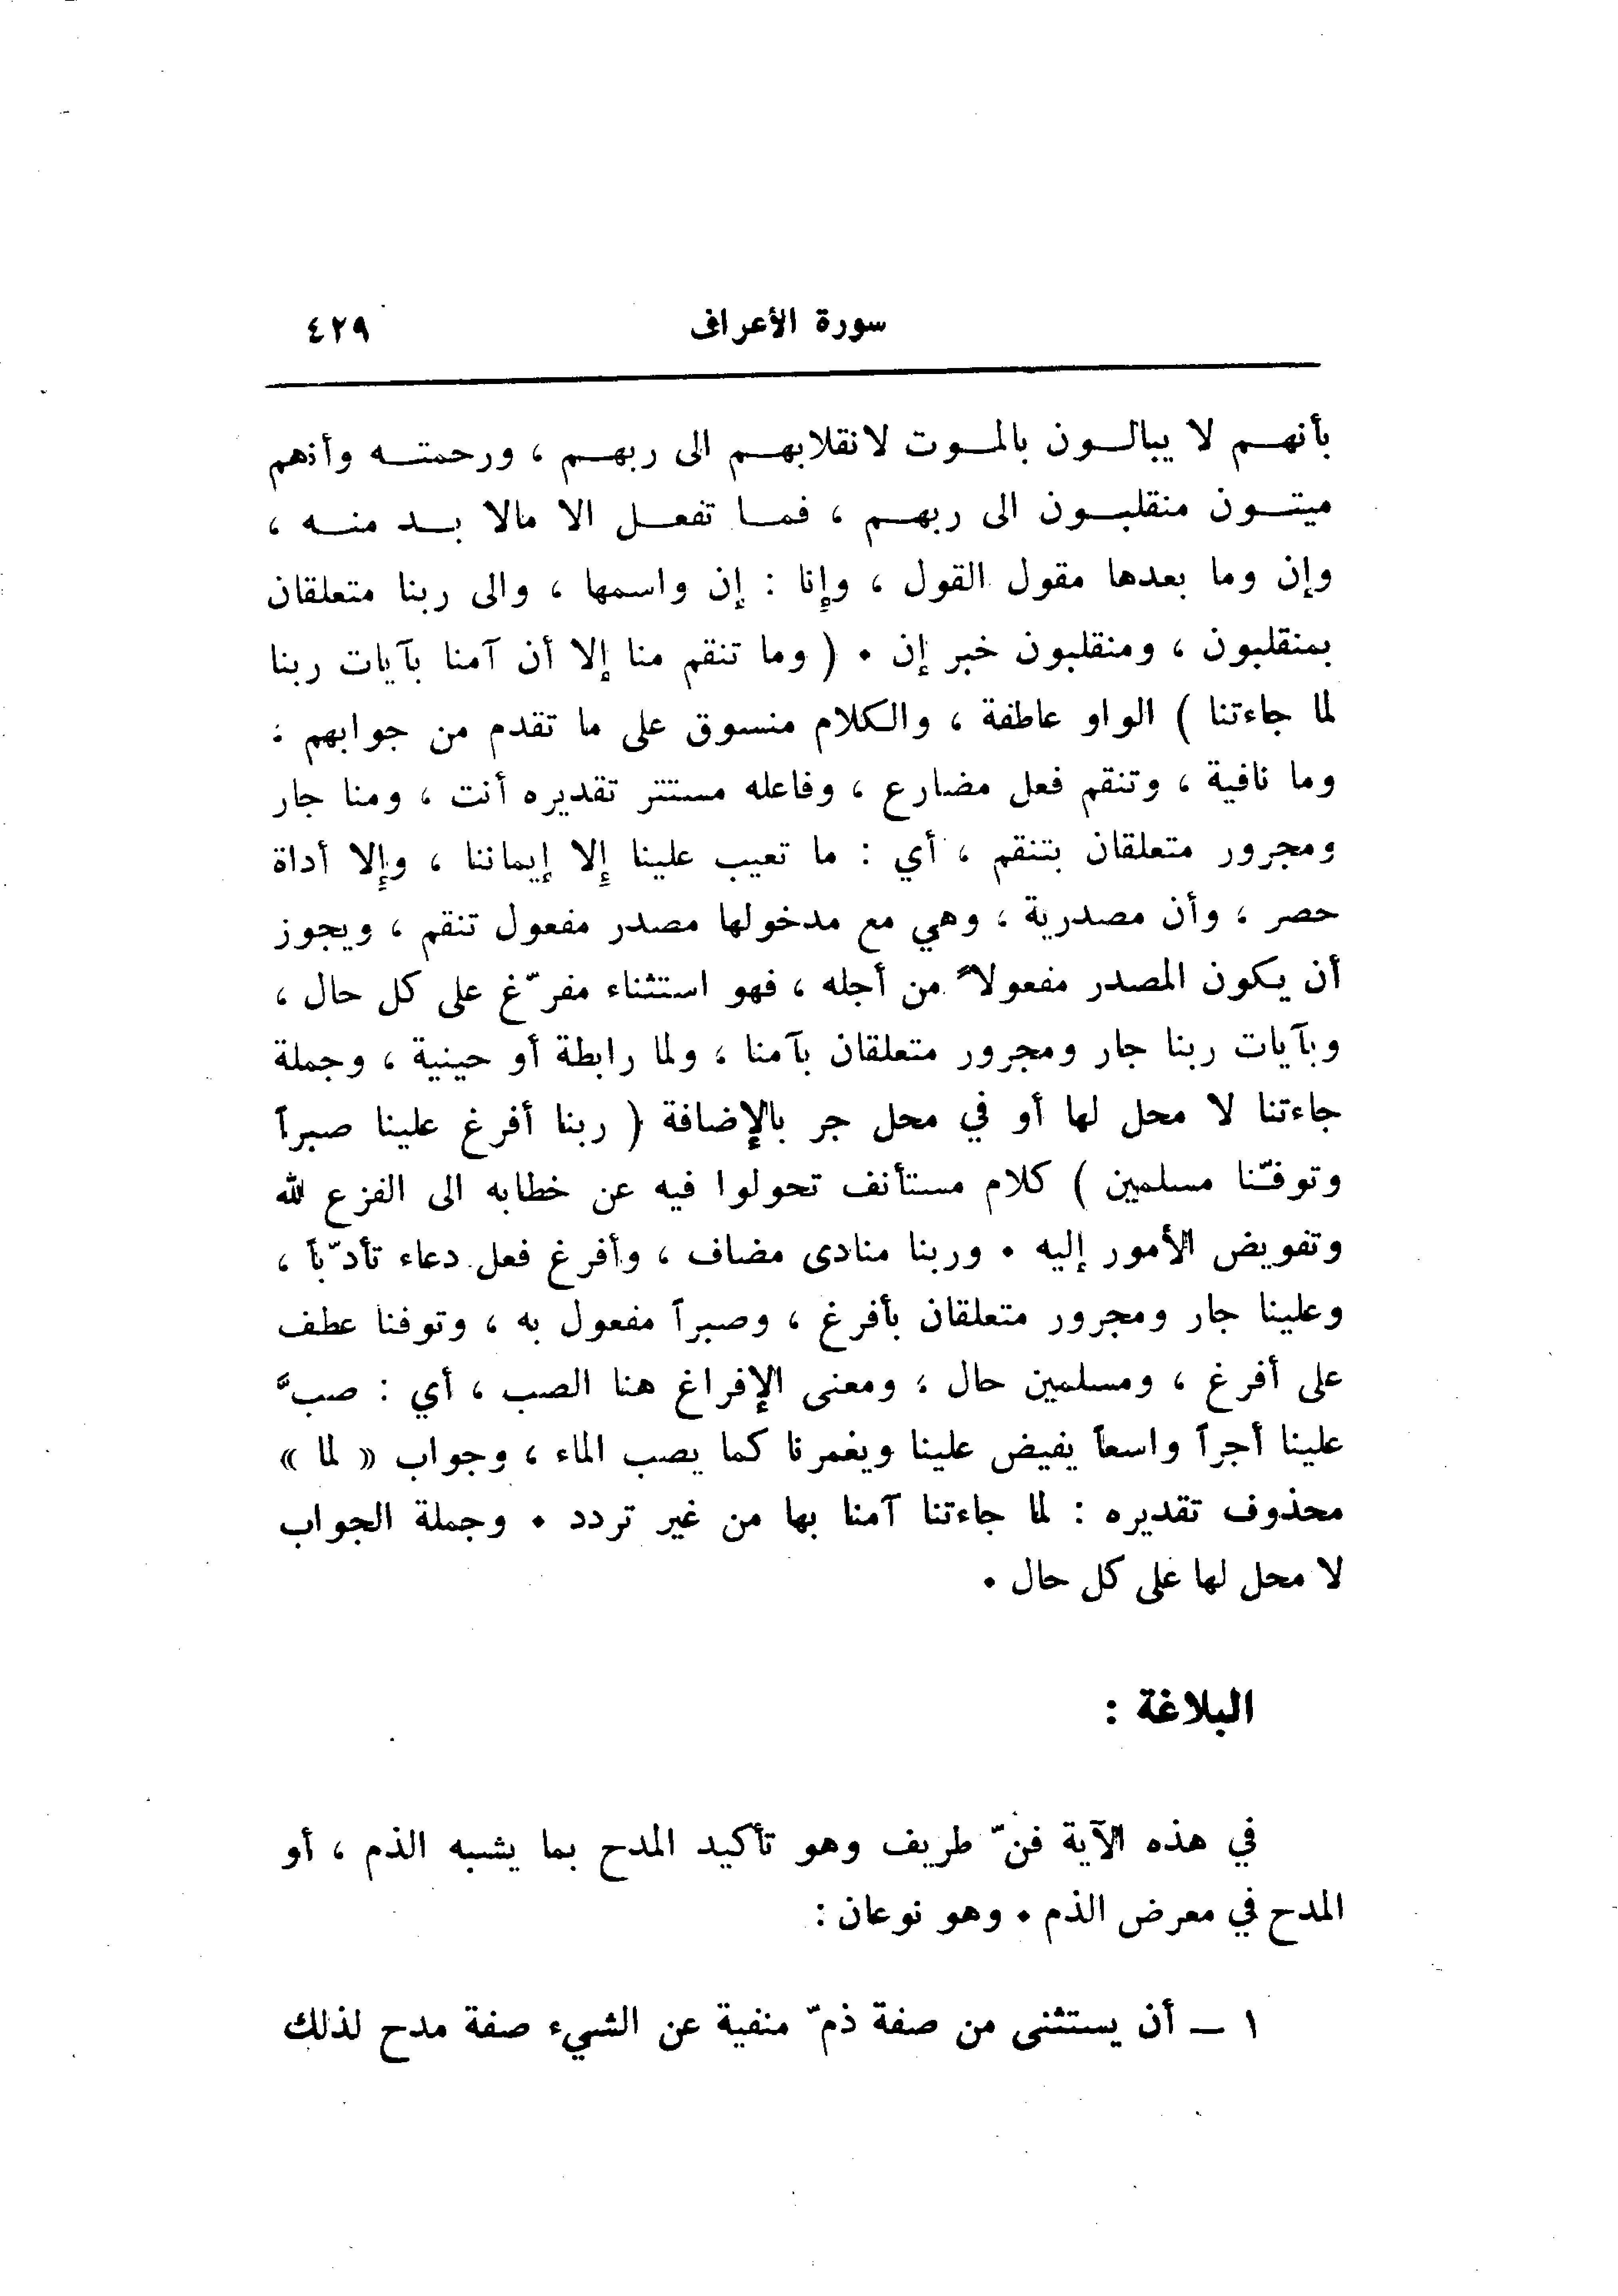 سورة الأعراف ٤٢٩
بأنهم لا يبالون بالموت لانقلابهم الى ربهم ، ورحمته وأنهم
ميتون منقلبون الى ربهم ، فما تفعل الا مالا بد منه ،
وإن وما بعدها مقول القول ، وإنا : إن واسمها ، والى ربنا متعلقان
بمنقلبون ، ومنقلبون خبر إن . ( وما تنقم منا إلا أن آمنا بآيات ربنا
لما جاءتنا ) الواو عاطفة ، والكلام منسوق على ما تقدم من جوابهم :
وما نافية ، وتنقم فعل مضارع ، وفاعله مستتر تقديره أنت ، ومنا جار
ومجرور متعلقان بتنقم ، أي : ما تعيب علينا إلا إيماننا ، وإلا أداة
حصر ، وأن مصدرية ، وهي مع مدخولها مصدر مفعول تنقم ، ويجوز
أن يكون المصدر مفعولاً من أجله ، فهو استثناء مفرّغ على كل حال ،
وبآيات ربنا جار ومجرور متعلقان بآمنا ، ولما رابطة أو حينية ، وجملة
جاءتنا لا محل لها أو في محل جر بالإضافة ( ربنا أفرغ علينا صبراً
وتوفّنا مسلمين ) كلام مستأنف تحولوا فيه عن خطابه الى الفزع لله
وتفويض الأمور إليه . وربنا منادى مضاف ، وأفرغ فعل دعاء تأدّباً ،
وعلينا جار ومجرور متعلقان بأفرغ ، وصبراً مفعول به ، وتوفنا عطف
على أفرغ ، ومسلمين حال ، ومعنى الإفراغ هنا الصب ، أي : صبَّ
علينا أجراً واسعاً يفيض علينا ويغمرنا كما يصب الماء ، وجواب « لما »
محذوف تقديره : لما جاءتنا آمنا بها من غير تردد . وجملة الجواب
لا محل لها على كل حال .
البلاغة :
في هذه الآية فنّ طريف وهو تأكيد المدح بما يشبه الذم ، أو
المدح في معرض الذم . وهو نوعان :
١ – أن يستثنى من صفة ذمّ منفية عن الشيء صفة مدح لذلك